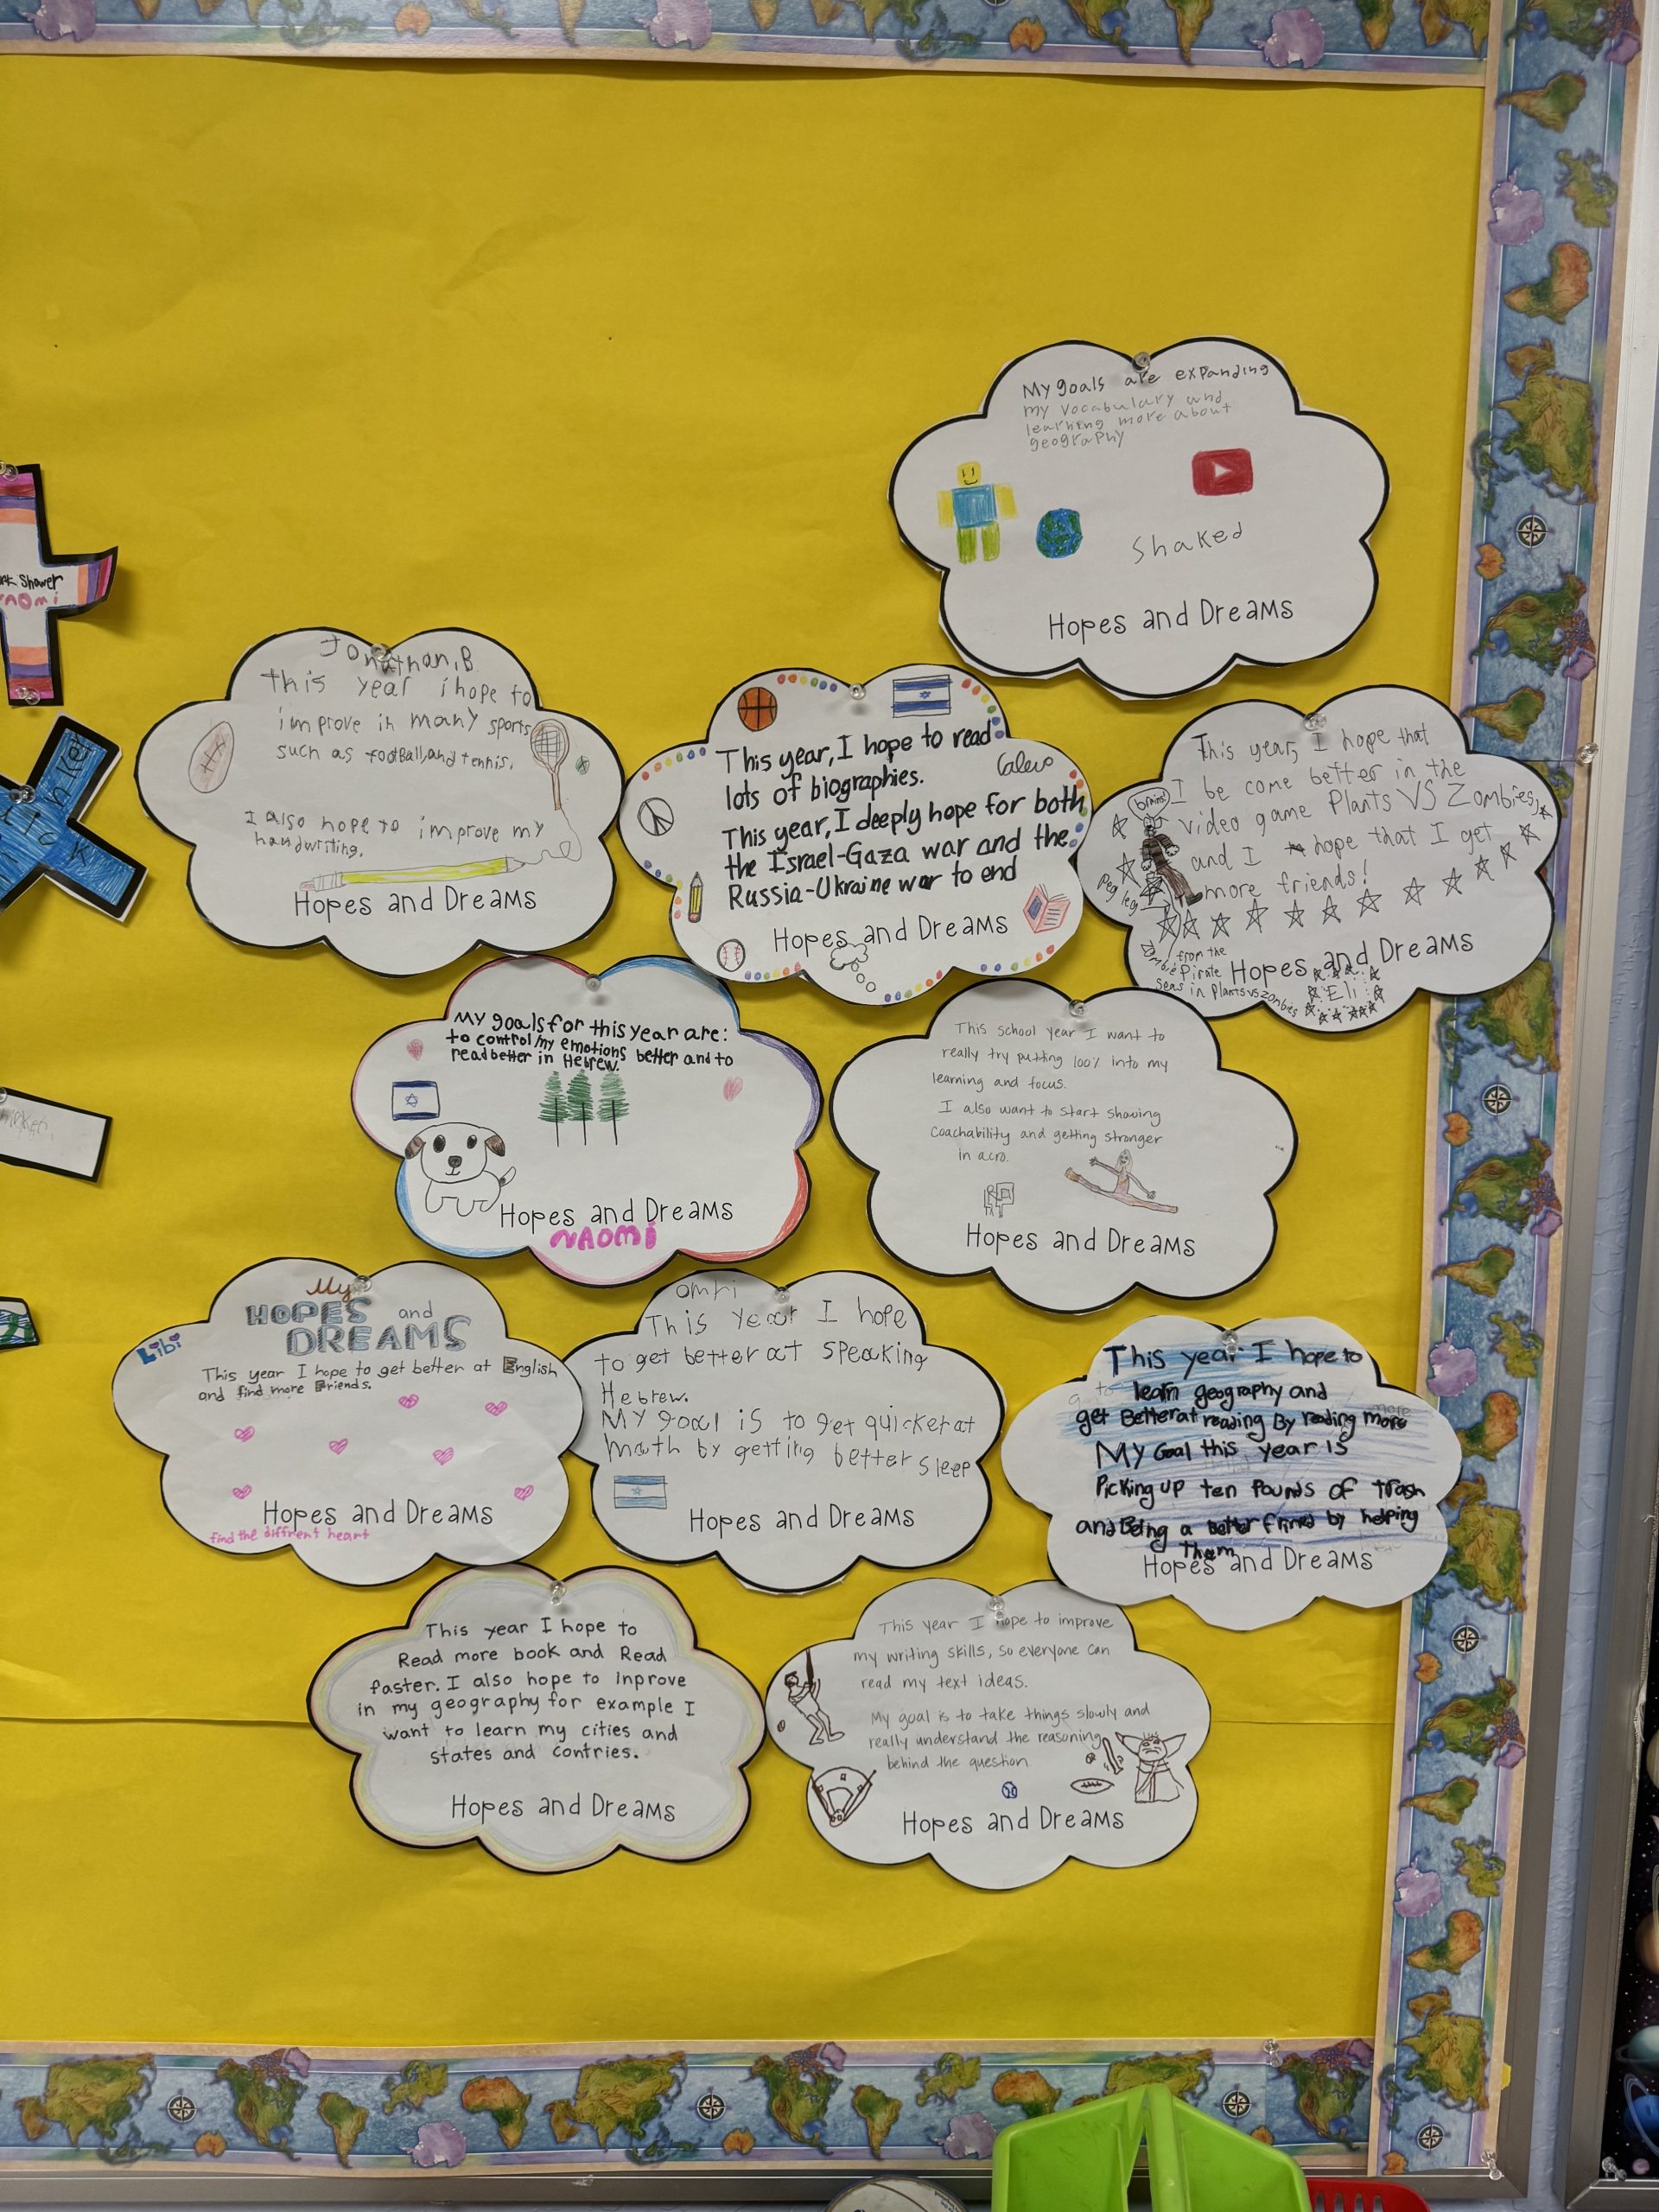 My goals are expanding
my vocabulary and
learning more about
geography
Shaked
Hopes and Dreams
Shower
NAOMi
Jonathan, B
This year i hope to
improve in many sports
such as football, and tennis.
I also hope to improve my
handwriting.
Hopes and Dreams
This year, I hope to read
lots of biographies.
This year, I deeply hope for both
the Israel-Gaza war and the
Russia-Ukraine war to end
Hopes and Dreams
This year, I hope that
I be come better in the
video game Plants VS Zombies,
and I hope that I get
more friends!
brains!
Peg leg
Zombie from the
Pirate
Seas in Plants vs zombies
Hopes and Dreams
Eli
My goals for this year are:
to control my emotions better and to
read better in Hebrew.
Hopes and Dreams
NAOMi
This school year I want to
really try putting 100% into my
learning and focus.
I also want to start showing
coachability and getting stronger
in acro.
Hopes and Dreams
My
HOPES and
DREAMS
Libi
This year I hope to get better at English
and find more Friends.
Hopes and Dreams
find the diffrent heart
omri
This year I hope
to get better at speaking
Hebrew.
My goal is to get quicker at
math by getting better sleep
Hopes and Dreams
This year I hope to
learn geography and
get Better at reading By reading more
My Goal this year is
Picking up ten Pounds of trash
and Being a better friend by helping
Them
Hopes and Dreams
This year I hope to
Read more book and Read
faster. I also hope to inprove
in my geography for example I
want to learn my cities and
states and contries.
Hopes and Dreams
This year I hope to improve
my writing skills, so everyone can
read my text ideas.
My goal is to take things slowly and
really understand the reasoning
behind the question
Hopes and Dreams